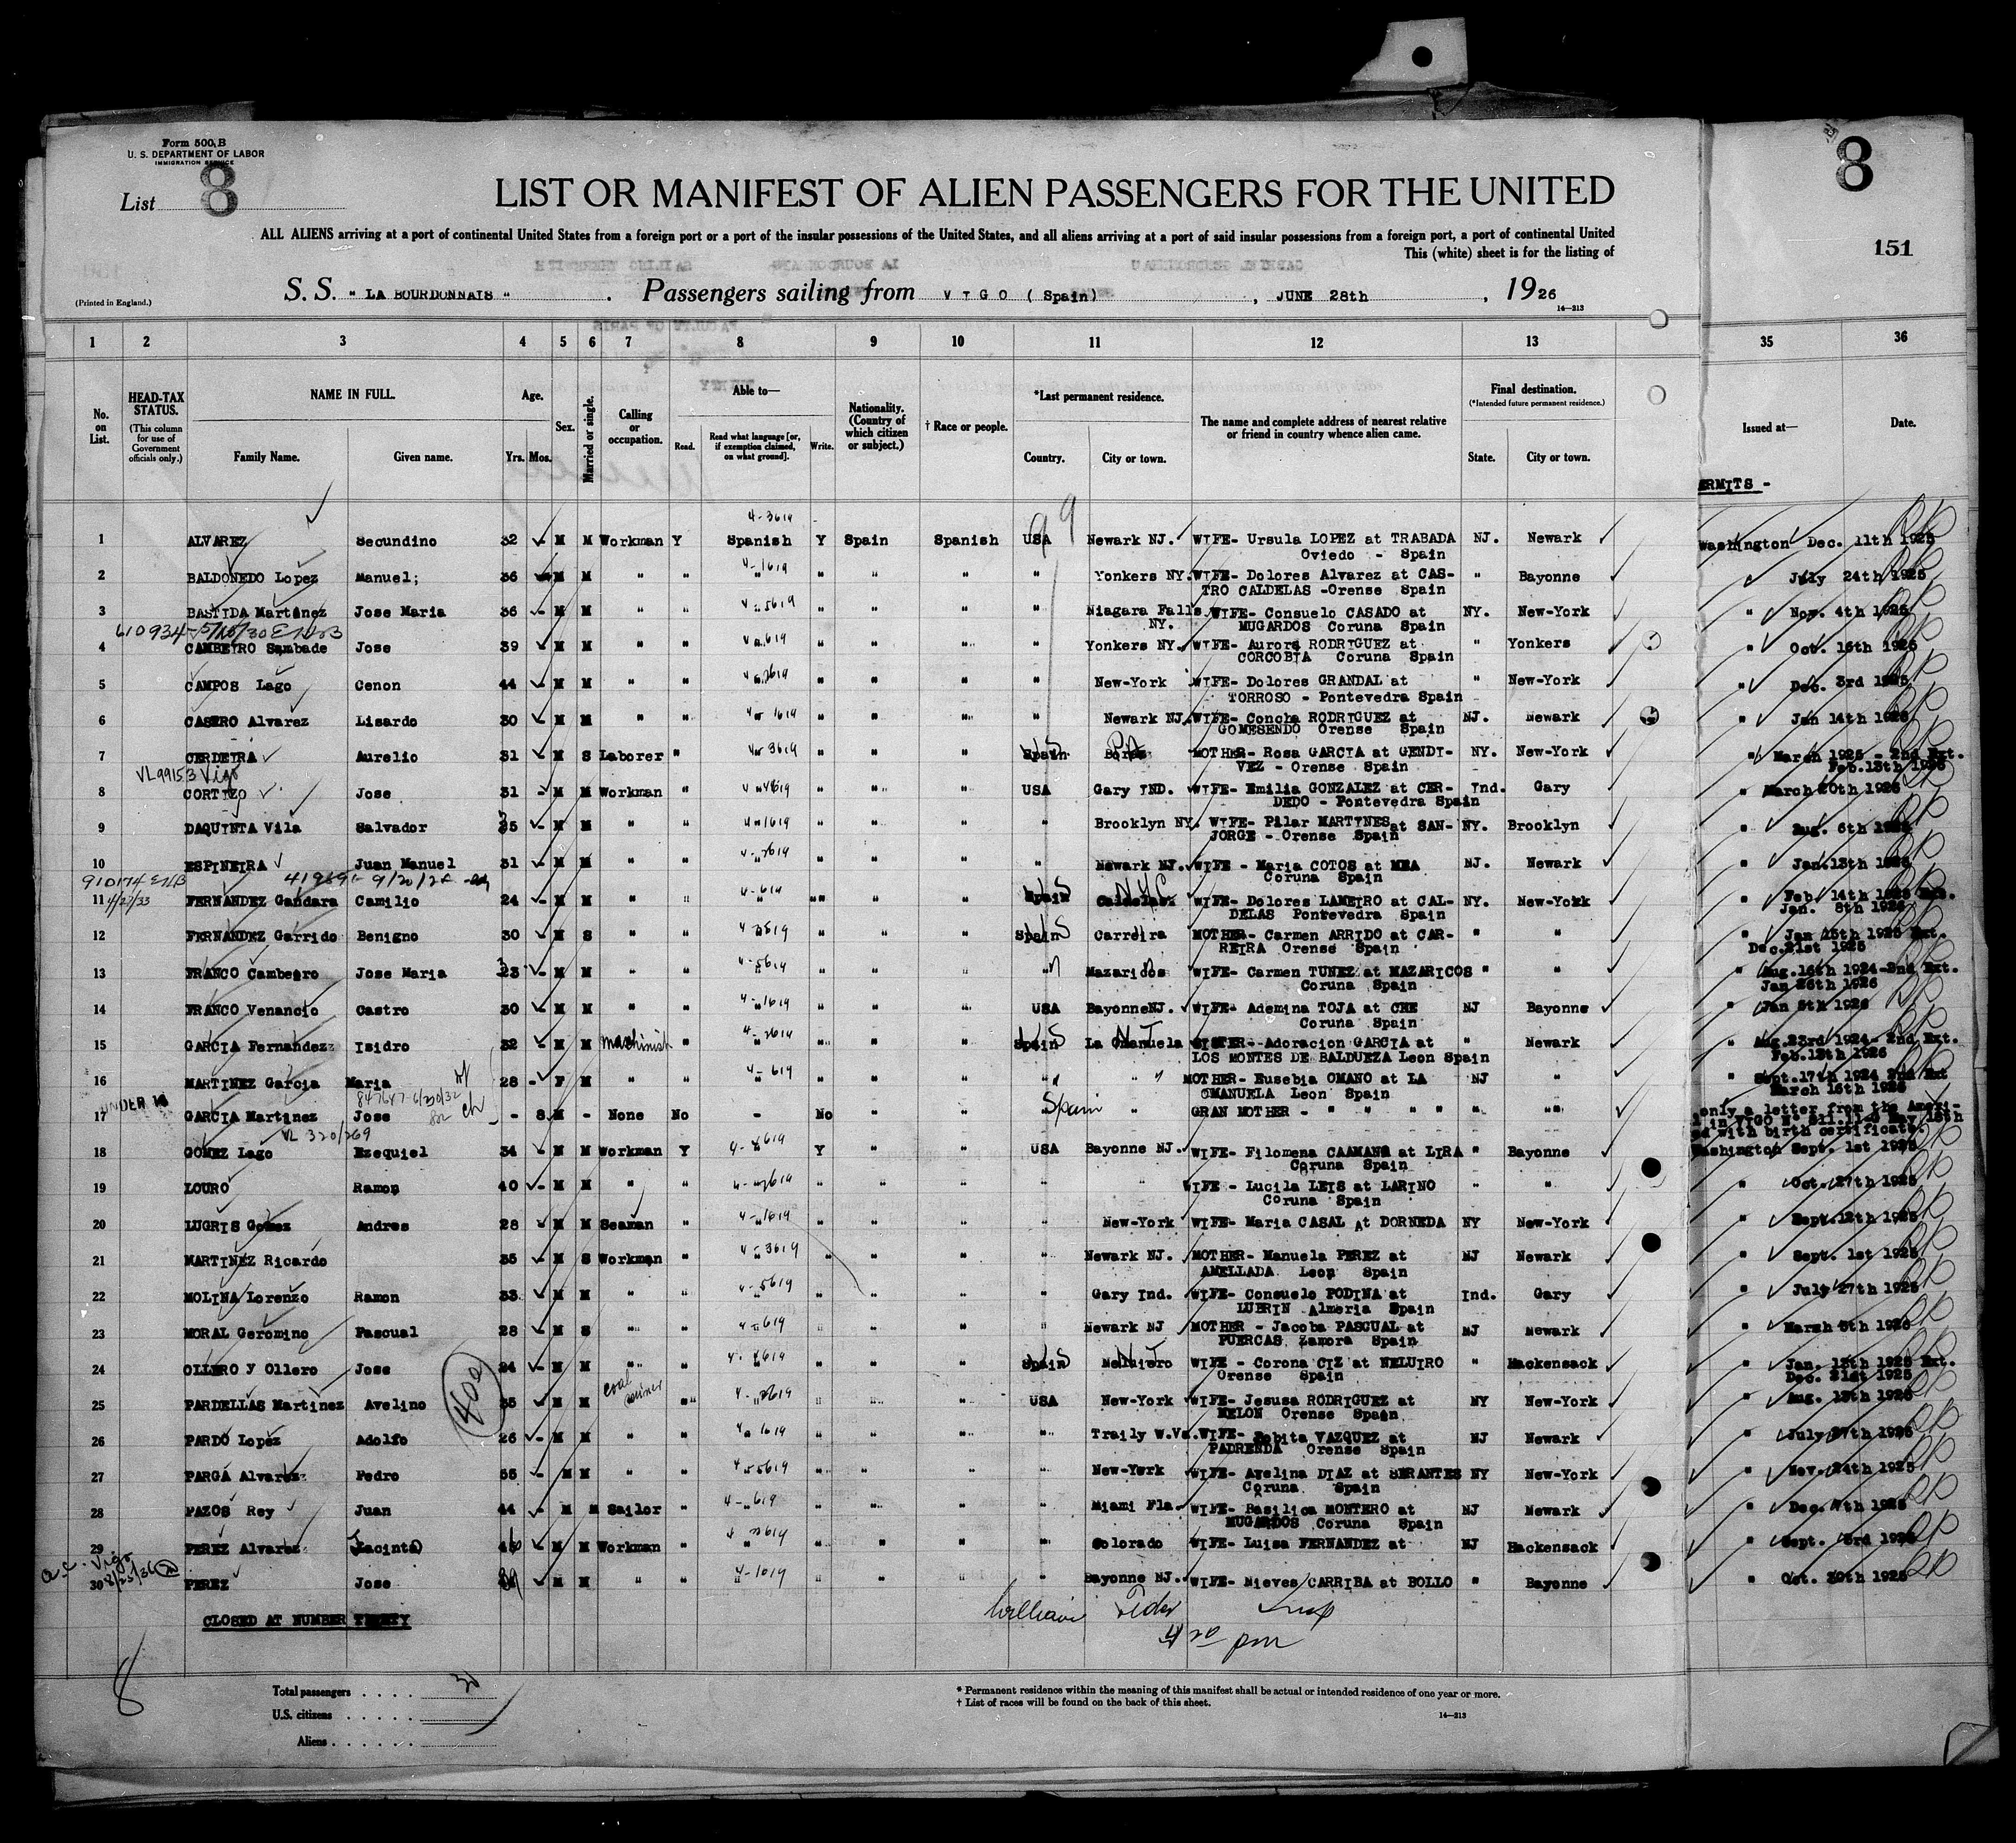 Form 500 B
U. S. DEPARTMENT OF LABOR
IMMIGRATION SERVICE
List 8
8
151
LIST OR MANIFEST OF ALIEN PASSENGERS FOR THE UNITED
ALL ALIENS arriving at a port of continental United States from a foreign port or a port of the insular possessions of the United States, and all aliens arriving at a port of said insular possessions from a foreign port, a port of continental United
This (white) sheet is for the listing of
(Printed in England.)
S. S. " LA BOURDONNAIS " . Passengers sailing from VIGO (Spain) , JUNE 28th , 1926
14—213
1 2 3 4 5 6 7 8 9 10 11 12 13 35 36
No. on List.
HEAD-TAX STATUS.
(This column for use of Government officials only.)
NAME IN FULL.
Family Name. Given name.
Age.
Yrs. Mos.
Sex.
Married or single.
Calling or occupation.
Able to—
Read. Read what language [or, if exemption claimed, on what ground]. Write.
Nationality. (Country of which citizen or subject.)
† Race or people.
*Last permanent residence.
Country. City or town.
The name and complete address of nearest relative or friend in country whence alien came.
Final destination.
(*Intended future permanent residence.)
State. City or town.
Issued at— Date.
ERMITS -
4-3619
1 ALVAREZ Secundino 32 M M Workman Y Spanish Y Spain Spanish USA Newark NJ. WIFE- Ursula LOPEZ at TRABADA NJ. Newark Washington Dec. 11th 1925
Oviedo - Spain
2 BALDONEDO Lopez Manuel; 36 M M " " " " " " " Yonkers NY. WIFE- Dolores Alvarez at CAS- " Bayonne July 24th 1925
TRO CALDELAS -Orense Spain
3 BASTIDA Martinez Jose Maria 36 M M " " " " " " " Niagara Falls NY. WIFE- Consuelo CASADO at NY. New-York " Nov. 4th 1925
MUGARDOS Coruna Spain
610934-5/10/30
4 CAMBEIRO Sambade Jose 39 M M " " " " " " Yonkers NY. WIFE- Aurora RODRIGUEZ at " Yonkers " Oct. 16th 1925
CORCOBIA Coruna Spain
5 CAMPOS Lago Cenon 44 M M " " " " " " New-York WIFE- Dolores GRANDAL at " New-York " Dec. 3rd 1925
TORROSO - Pontevedra Spain
6 CASERO Alvarez Lisardo 30 M M " " " " " " Newark NJ. WIFE- Concha RODRIGUEZ at NJ. Newark " Jan 14th 1926
GOMESENDO Orense Spain
7 CERDEIRA Aurelio 31 M S Laborer " " " " Spain MOTHER- Rosa GARCIA at GENDI- NY. New-York " March 1925 - 2nd Ext.
VEZ - Orense Spain Feb.13th 1926
VL99153 Vigo
8 CORTIZO Jose 31 M M Workman " " " " USA Gary IND. WIFE- Emilia GONZALEZ at CER- Ind. Gary " March 20th 1926
DEDO - Pontevedra Spain
9 DAQUINTA Vila Salvador 35 M M " " " " " " Brooklyn NY. WIFE- Pilar MARTINES at SAN- NY. Brooklyn " Aug. 6th
JORGE - Orense Spain
10 ESPINEIRA Juan Manuel 31 M M " " " " " " Newark NJ. WIFE - Maria COTOS at MEA NJ. Newark " Jan.13th 1926
Coruna Spain
910174
11 4/21/33 FERNANDEZ Gandara Camilio 24 M M " " " " " Spain WIFE- Dolores LAMEIRO at CAL- NY. New-York " Feb 14th 1925 Ext.
DELAS Pontevedra Spain Jan. 8th 1926
12 FERNANDEZ Garrido Benigno 30 M S " " " " " Spain Carreira MOTHER- Carmen ARRIDO at CAR- " " " Jan 15th 1925 Ext.
REIRA Orense Spain Dec.21st 1925
13 FRANCO Cambeiro Jose Maria 23 M M " " " " " " Mazaricos WIFE- Carmen TUNEZ at MAZARICOS " " " Aug.16th 1924-2nd Ext.
Coruna Spain Jan 26th 1926
14 FRANCO Venancio Castro 30 M M " " " " " USA Bayonne NJ. WIFE- Ademina TOJA at CHE NJ Bayonne " Jan 5th 1926
Coruna Spain
15 GARCIA Fernandez Isidro 32 M M machinist " " " " Spain La Omanuela SISTER- Adoracion GARCIA at " Newark " Aug.23rd 1924- 2nd Ext.
LOS MONTES DE BALDUEZA Leon Spain Feb.12th 1926
16 MARTINEZ Garcia Maria 28 F M " " " " " " " MOTHER- Eusebia OMANO at LA NJ " " Sept.17th 1924 2nd Ext
OMANUELA Leon Spain March 16th 1926
UNDER 16 847647-6/20/32
17 GARCIA Martinez Jose - 8 M - None No - No " " Spain " GRAN MOTHER - " " " " " " only a letter from the Ameri-
VL 320/269 ed with birth certificate.
18 GOMEZ Lago Ezequiel 34 M M Workman Y Y " " USA Bayonne NJ. WIFE- Filomena CAAMANS at LIRA " Bayonne Washington Sept. 1st 1925
Coruna Spain
19 LOURO Ramon 40 M M " " " " " " " WIFE - Lucila LEIS at LARINO " " " Oct. 27th 1925
Coruna Spain
20 LUGRIS Gomez Andres 28 M M Seaman " " " " " New-York WIFE- Maria CASAL At DORNEDA NY New-York " Sept.12th 1925
21 MARTINEZ Ricardo 35 M S Workman " " " " " Newark NJ. MOTHER- Manuela PEREZ at NJ Newark " Sept. 1st 1925
AMELLADA Leon Spain
22 MOLINA Lorenzo Ramon 33 M M " " " " " " Gary Ind. WIFE- Consuelo PODINA at Ind. Gary " July 27th 1925
LUBRIN Almeria Spain
23 MORAL Geromino Pascual 28 M S " " " " " " Newark NJ MOTHER - Jacoba PASCUAL at NJ Newark " Marsh 5th 1926
FUERCAS Zamora Spain
24 OLLERO y Ollero Jose 24 M M " " " " " Spain WIFE - Corona CIZ at NELUIRO " Hackensack " Jan. 13th 1925 Ext.
Orense Spain Dec. 21st 1925
400
25 PARDELLAS Martinez Avelino 35 M M coal miner " " " " USA New-York WIFE- Jesusa RODRIGUEZ at NY New-York " Aug. 13th 1925
MELON Orense Spain
26 PARDO Lopez Adolfo 26 M M " " " " " " Traily W.Va. WIFE- Pobita VAZQUEZ at NJ Newark " July 27th 1925
PADRENDA Orense Spain
27 PARGA Alvarez Pedro 55 M M " " " " " " New-York WIFE- Avelina DIAZ at SERANTES NY New-York " Nov. 24th 1925
Coruna Spain
28 PAZOS Rey Juan 44 M M Sailor " " " " " Miami Fla. WIFE- Basilica MONTERO at NJ Newark " Dec. 7th 1925
MUGARDOS Coruna Spain
29 PEREZ Alvarez Jacinto M M Workman " " " " " Colorado WIFE- Luisa FERNANDEZ at NJ Hackensack " Sept. 3rd 1925
Vigo 8/25/36
30 PEREZ Jose 39 M M " " " " " Bayonne NJ. WIFE- Nieves CARRIBA at BOLLO " Bayonne " Oct. 20th 1925
CLOSED AT NUMBER THIRTY
William
4 20 pm
8
Total passengers . . . . 30
U.S. citizens . . . . .
Aliens . . . . . .
* Permanent residence within the meaning of this manifest shall be actual or intended residence of one year or more.
† List of races will be found on the back of this sheet.
14—213